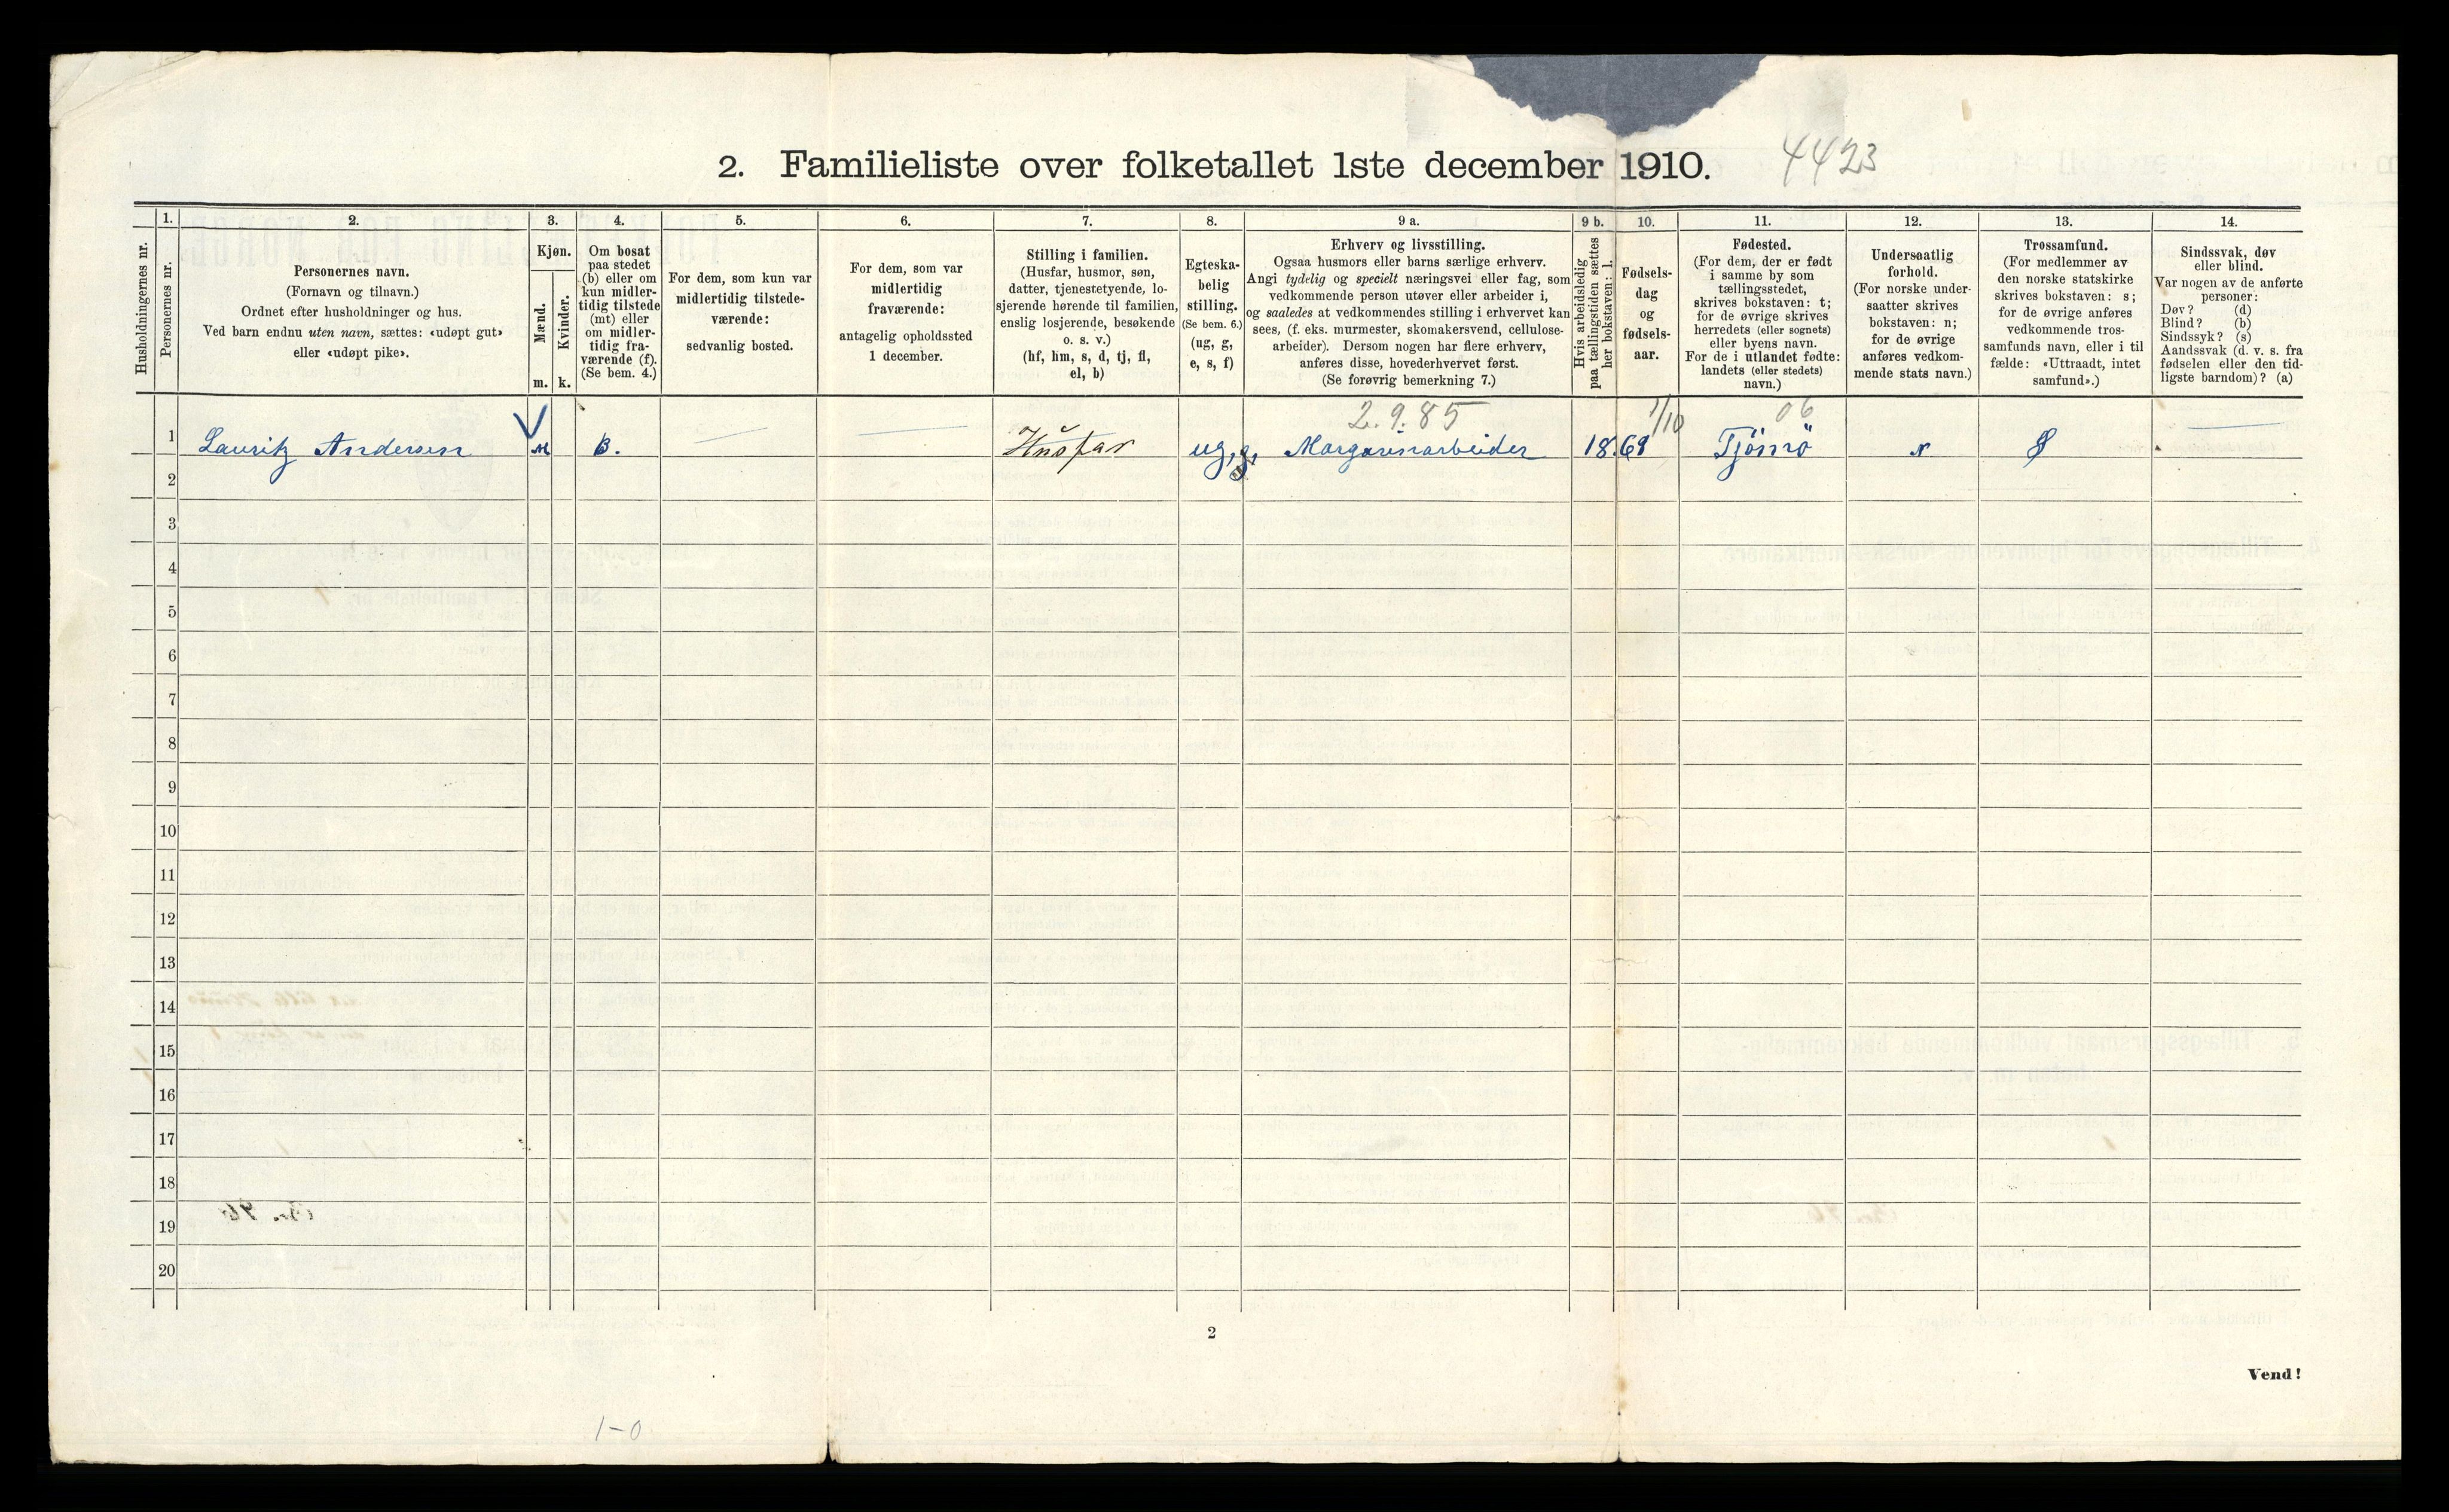 2. Familieliste over folketallet 1ste december 1910. 4423
Husholdningernes nr.
1.
Personernes nr.
2.
Personernes navn.
(Fornavn og tilnavn.)
Ordnet efter husholdninger og hus.
Ved barn endnu uten navn, sættes: «udøpt gut»
eller «udøpt pike».
3.
Kjøn.
Mænd.
Kvinder.
m. k.
4.
Om bosat
paa stedet
(b) eller om
kun midler-
tidig tilstede
(mt) eller
om midler-
tidig fra-
værende (f).
(Se bem. 4.)
5.
For dem, som kun var
midlertidig tilstede-
værende:
sedvanlig bosted.
6.
For dem, som var
midlertidig
fraværende:
antagelig opholdssted
1 december.
7.
Stilling i familien.
(Husfar, husmor, søn,
datter, tjenestetyende, lo-
sjerende hørende til familien,
enslig losjerende, besøkende
o. s. v.)
(hf, hm, s, d, tj, fl,
el, b)
8.
Egteska-
belig
stilling.
(Se bem. 6.)
(ug, g,
e, s, f)
9 a.
Erhverv og livsstilling.
Ogsaa husmors eller barns særlige erhverv.
Angi tydelig og specielt næringsvei eller fag, som
vedkommende person utøver eller arbeider i,
og saaledes at vedkommendes stilling i erhvervet kan
sees, (f. eks. murmester, skomakersvend, cellulose-
arbeider). Dersom nogen har flere erhverv,
anføres disse, hovederhvervet først.
(Se forøvrig bemerkning 7.)
9 b.
Hvis arbeidsledig
paa tællingstiden sættes
her bokstaven: l.
10.
Fødsels-
dag
og
fødsels-
aar.
11.
Fødested.
(For dem, der er født
i samme by som
tællingsstedet,
skrives bokstaven: t;
for de øvrige skrives
herredets (eller sognets)
eller byens navn.
For de i utlandet fødte:
landets (eller stedets)
navn.)
12.
Undersaatlig
forhold.
(For norske under-
saatter skrives
bokstaven: n;
for de øvrige
anføres vedkom-
mende stats navn.)
13.
Trossamfund.
(For medlemmer av
den norske statskirke
skrives bokstaven: s;
for de øvrige anføres
vedkommende tros-
samfunds navn, eller i til
fælde: «Uttraadt, intet
samfund».)
14.
Sindssvak, døv
eller blind.
Var nogen av de anførte
personer:
Døv? (d)
Blind? (b)
Sindssyk? (s)
Aandssvak (d. v. s. fra
fødselen eller den tid-
ligste barndom)? (a)
2.9.85 1/10 06
1 Lauritz Andersen M B. — — Husfar ug, g, Margarinarbeider 1868 Tjömö N S —
2
3
4
5
6
7
8
9
10
11
12
13
14
15
16
17
18
19
20
2
Vend!
1-0